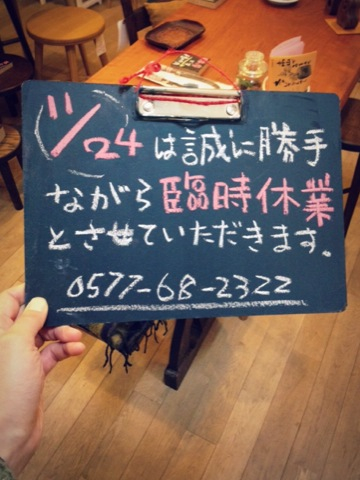 11/24は誠に勝手
ながら臨時休業
とさせていただきます。
0577-68-2322